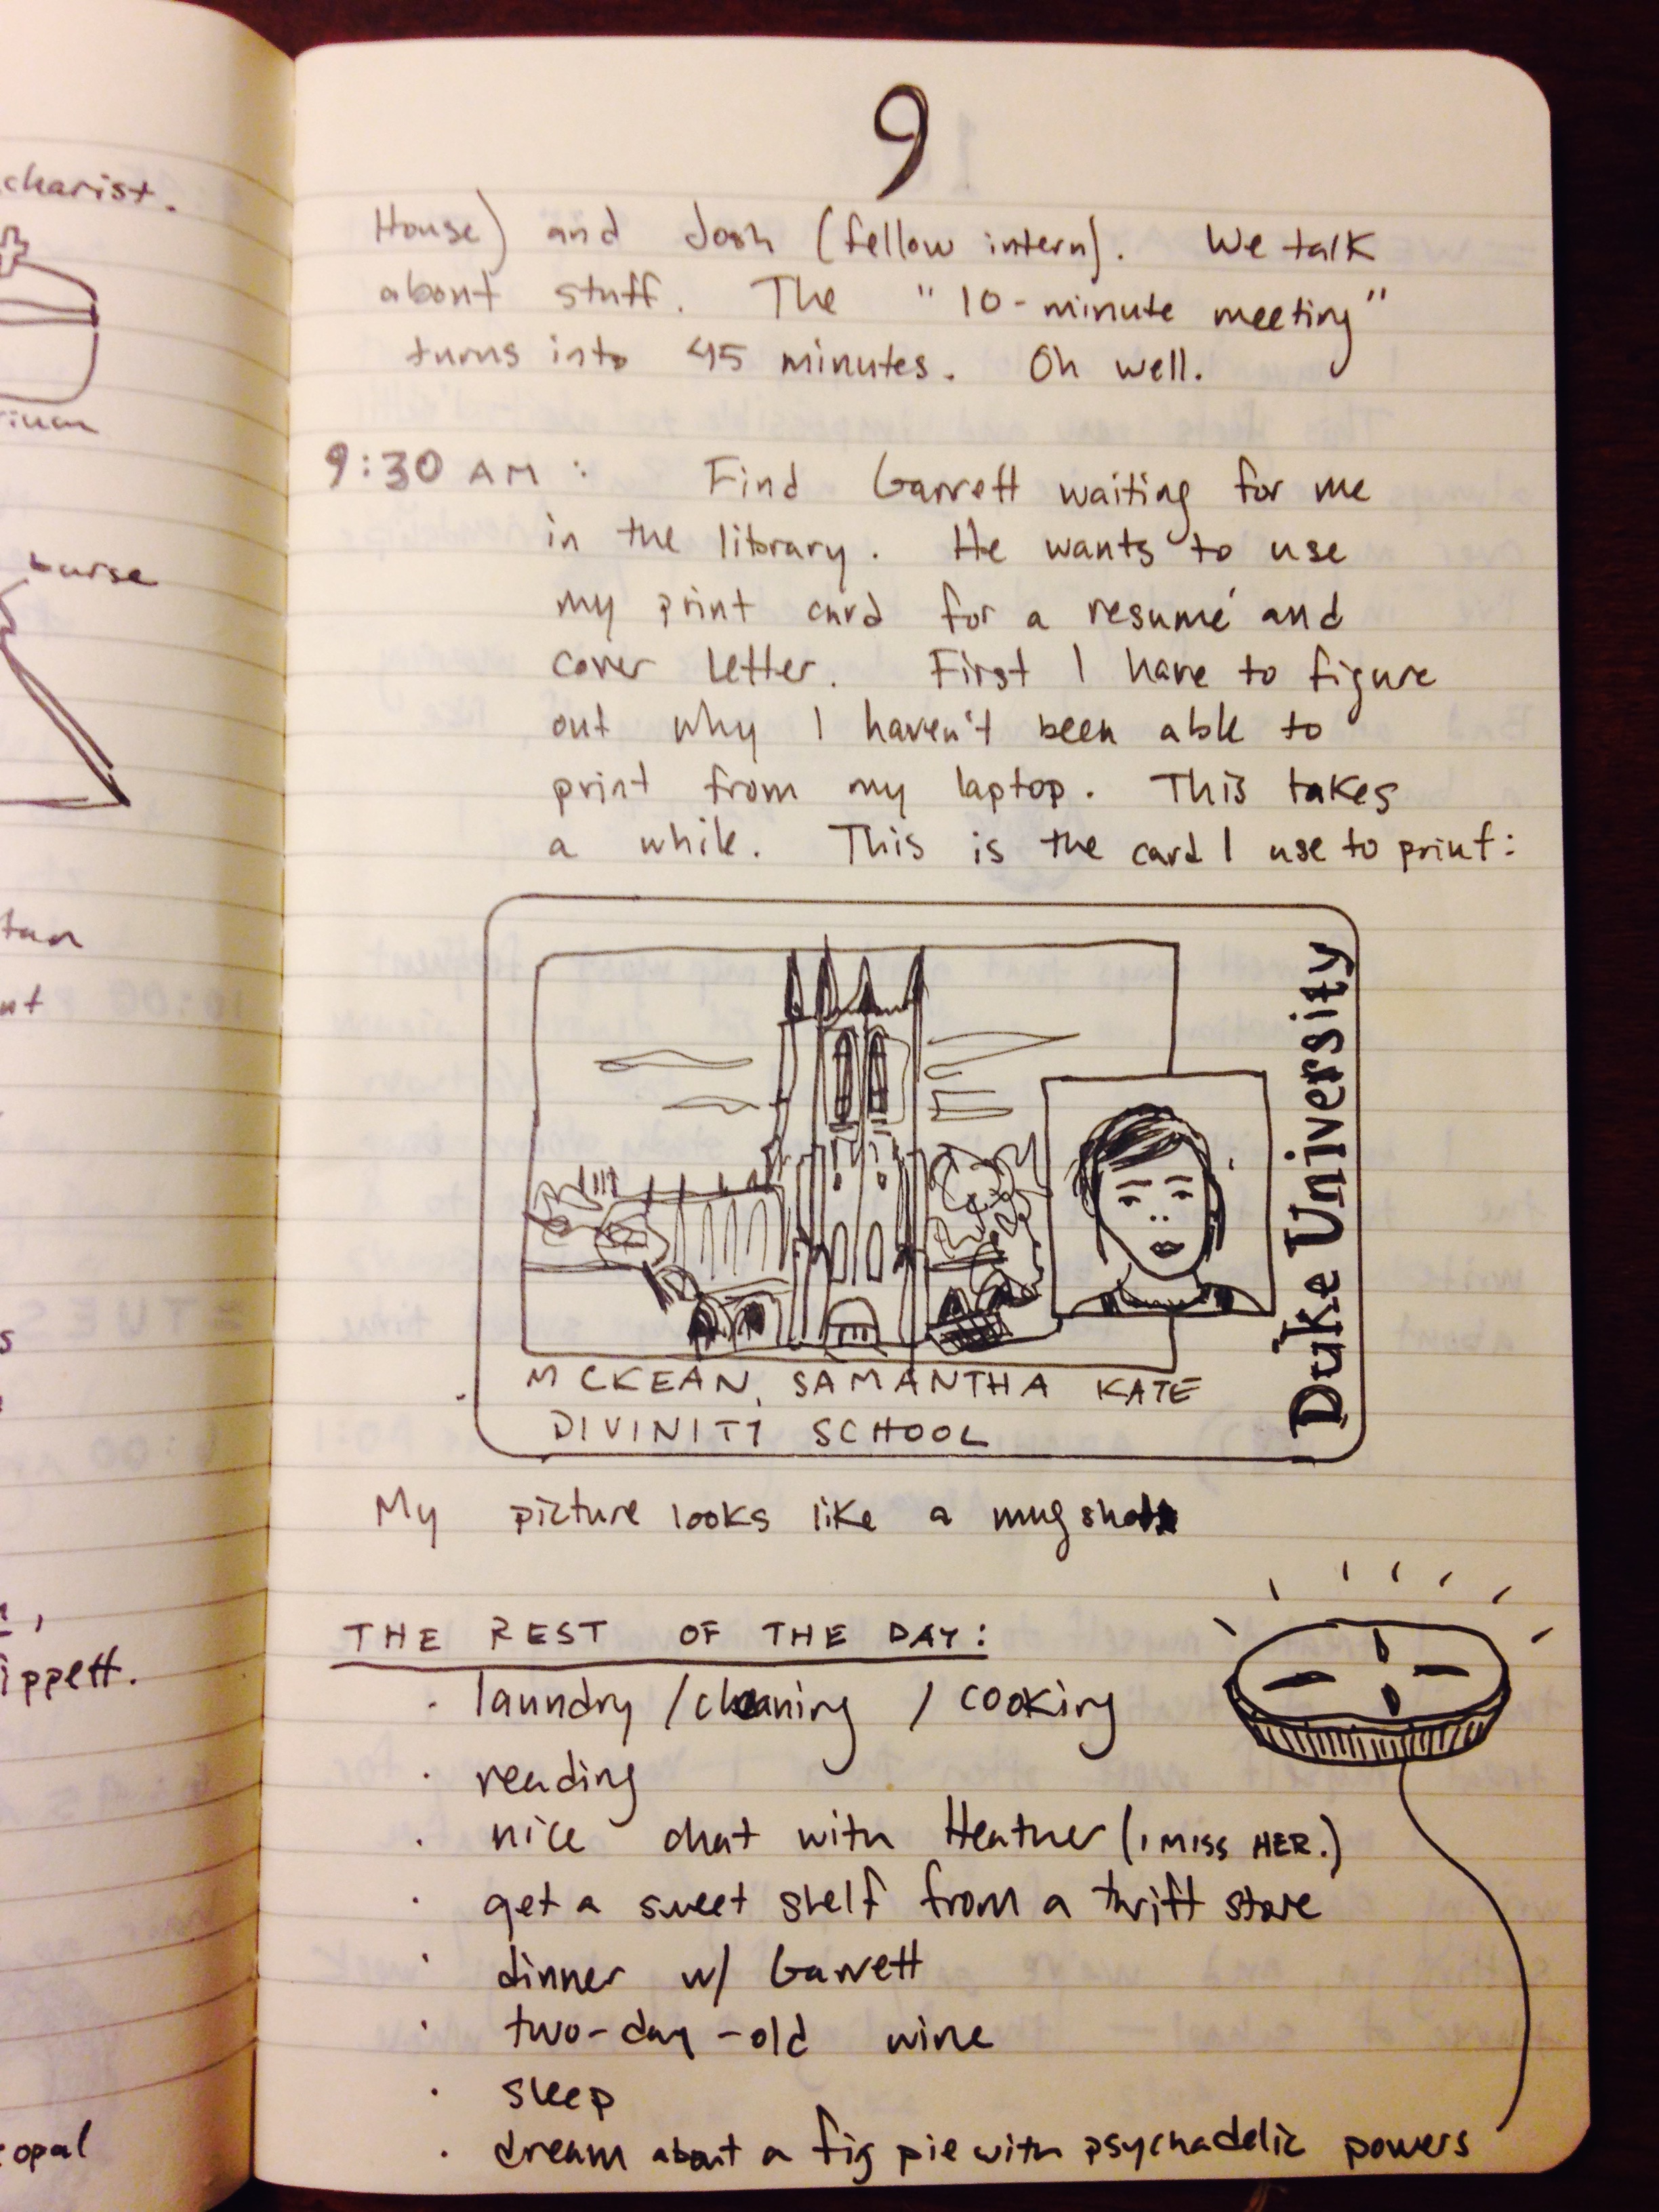 charist.
burse
ippett.
opal
9
House) and Josh (fellow intern). We talk
about stuff. The "10-minute meeting"
turns into 45 minutes. Oh well.
9:30 AM: Find Garrett waiting for me
in the library. He wants to use
my print card for a resumé and
cover letter. First I have to figure
out why I haven't been able to
print from my laptop. This takes
a while. This is the card I use to print:
Duke University
MCKEAN, SAMANTHA KATE
DIVINITY SCHOOL
My picture looks like a mugshot
THE REST OF THE DAY:
· laundry / cleaning / cooking
· reading
· nice chat with Heather (I MISS HER.)
· get a sweet shelf from a thrift store
· dinner w/ Garrett
· two-day-old wine
· sleep
· dream about a fig pie with psychadelic powers